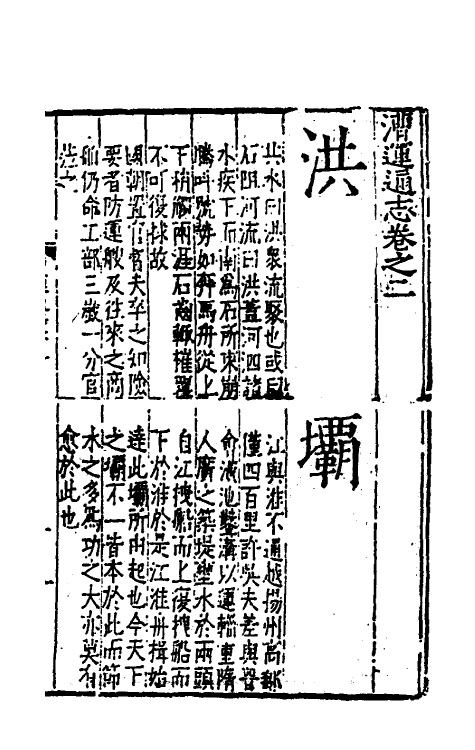 漕運通志卷之二
洪
共水曰洪衆流聚也或曰
石阻河流曰洪蓋河四
水疾下而南爲石所束崩
騰吼號勢如奔馬舟從上
下稍觸兩涯石齒輒摧
不可復救故
國朝置官督夫卒之如險
要者防運艘及徃來之商
舶仍命工部三歲一分官
壩
江與淮不通越揚州高郵
僅四百里許吳夫差與晉
俞液池鑿溝以運輜重隋
人廣之築堤壅水於兩頭
自江挽船而上復挽船而
下於淮於是江淮舟揖始
達此壩所由起也今天下
之壩不一皆本於此而節
水之多爲功之大亦莫有
愈於此也